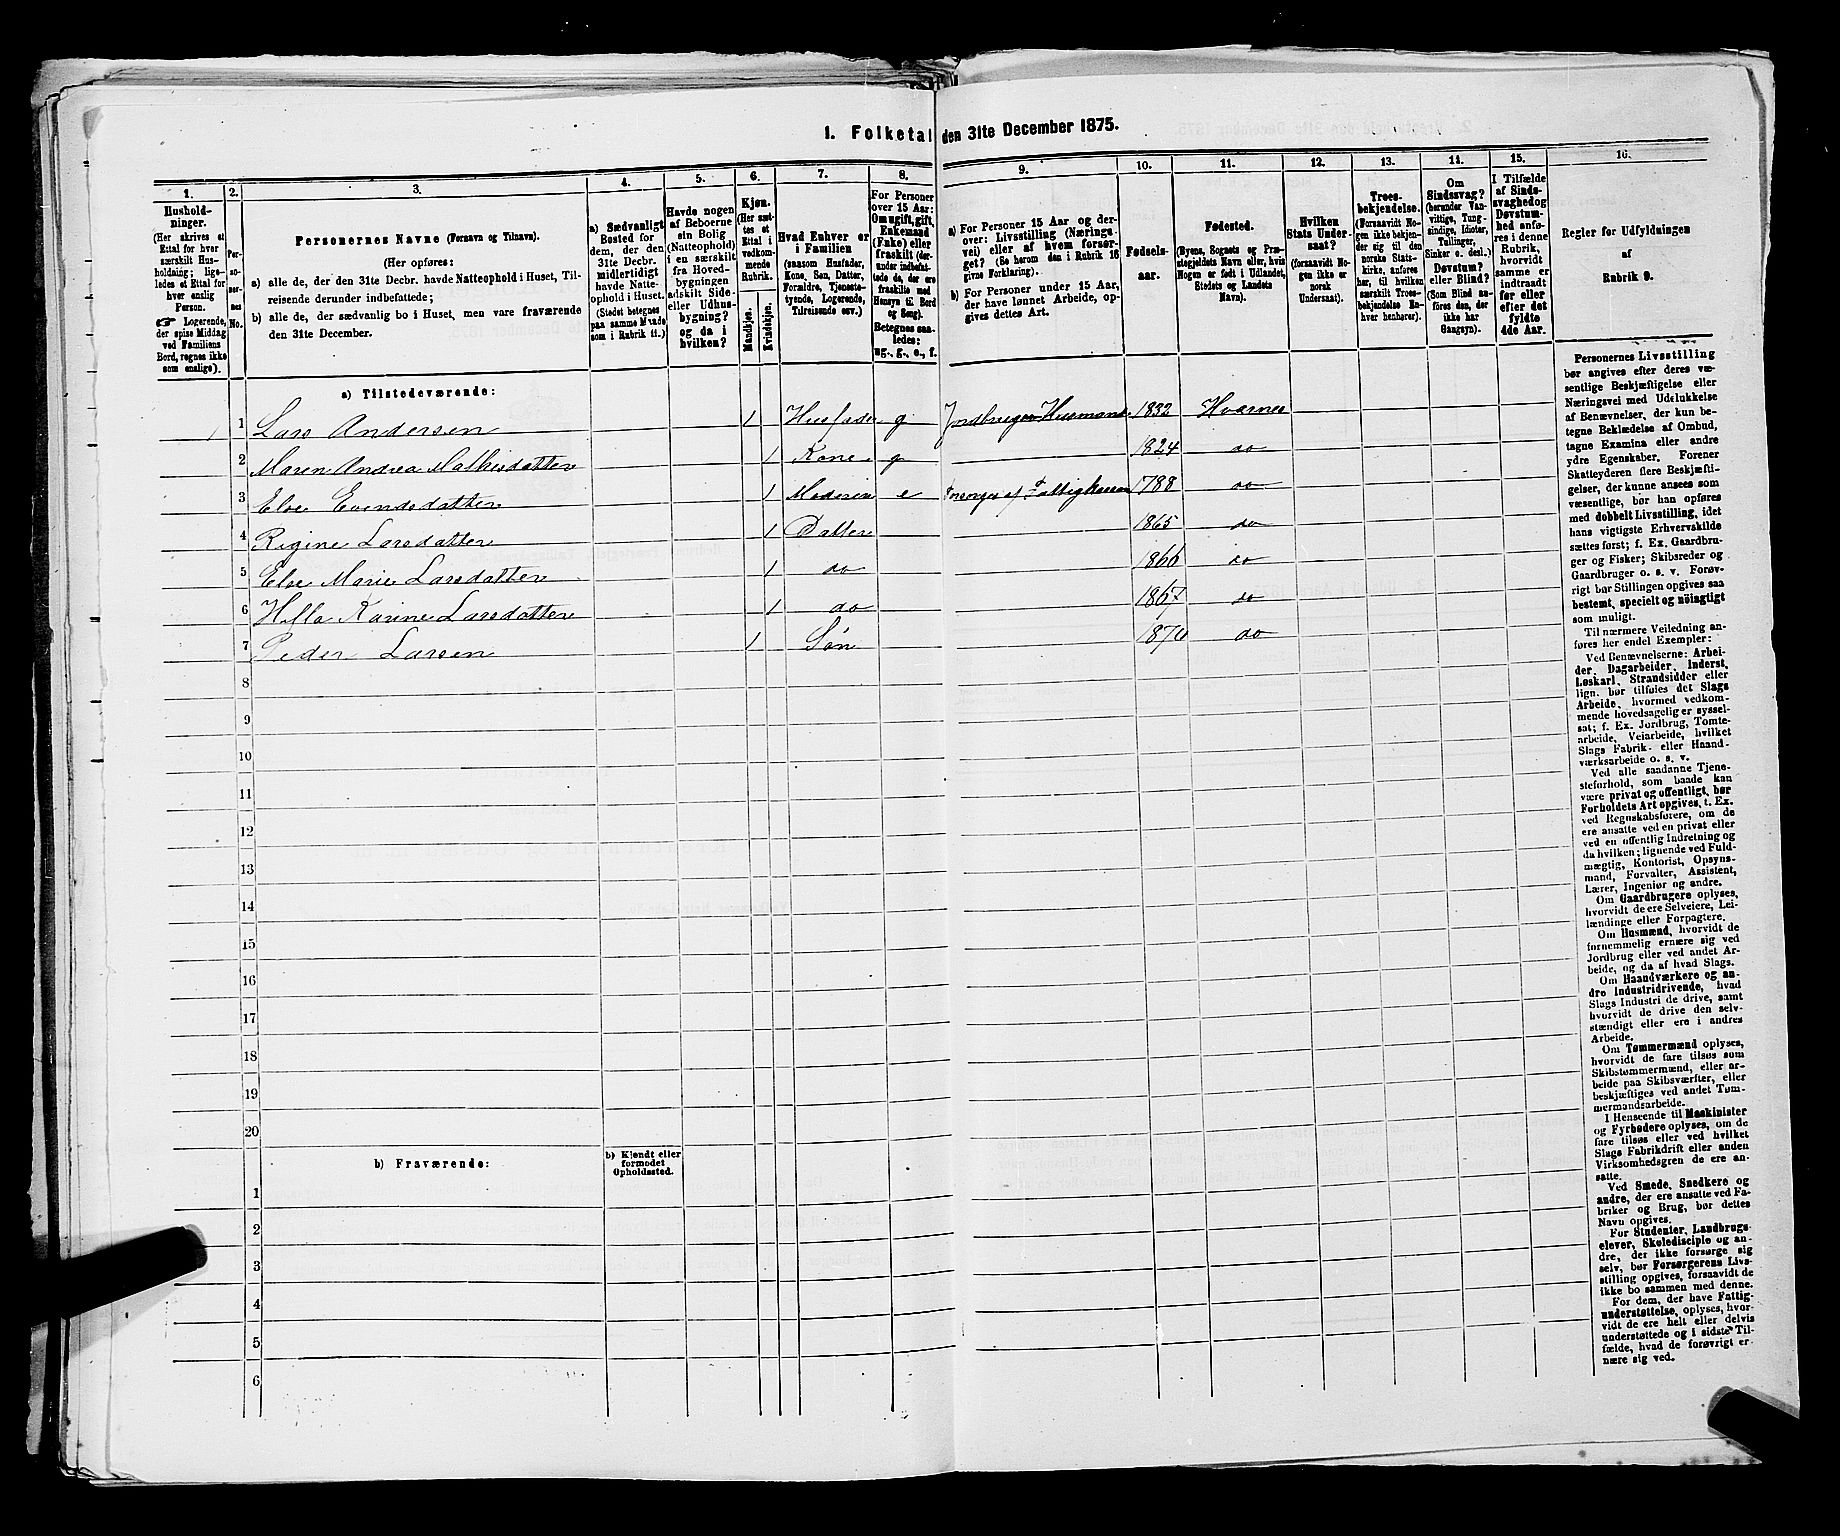 1. Folketal den 31te December 1875.
1. 2. 3. 4. 5. 6. 7. 8. 9. 10. 11. 12. 13. 14. 15. 16.
Hushold-
ninger.
(Her skrives et
Ettal for hver
særskilt Hus-
holdning; lige-
ledes et Ettal for
hver enslig
Person.
☞ Logerende,
der spise Middag
ved Familiens
Bord, regnes ikke
som enslige).
Per-
so-
ner-
nes
No.
Personernes Navne (Fornavn og Tilnavn).
(Her opføres:
a) alle de, der den 31te Decbr. havde Natteophold i Huset, Til-
reisende derunder indbefattede;
b) alle de, der sædvanlig bo i Huset, men vare fraværende
den 31te December.
a) Sædvanligt
Bosted for
dem, der den
31te Decbr.
midlertidigt
havde Natte-
ophold i Huset.
(Stedet betegnes
paa samme Maade
som i Rubrik 11.)
Havde nogen
af Beboerne
sin Bolig
(Natteophold)
i en særskilt
fra Hoved-
bygningen
adskilt Side-
eller Udhus-
bygning?
og da i
hvilken?
Kjøn.
(Her sæt-
tes et
Ettal i
vedkom-
mende
Rubrik.
Mandkjøn.
Kvindekjøn.
Hvad Enhver er
i Familien
(saasom Husfader,
Kone, Søn, Datter,
Forældre, Tjeneste-
tyende, Logerende,
Tilreisende osv.)
For Personer
over 15 Aar:
Om ugift, gift,
Enkemand
(Enke) eller
fraskilt (der-
under indbefat-
tede de, der ere
fraskilte med
Hensyn til Bord
og Seng).
Betegnes saa-
ledes:
ug., g., e., f.
a) For Personer 15 Aar og der-
over: Livsstilling (Nærings-
vei) eller af hvem forsør-
get? (Se herom den i Rubrik 16
givne Forklaring).
b) For Personer under 15 Aar,
der have lønnet Arbeide, op-
gives dettes Art.
Fødsels-
aar.
Fødested.
(Byens, Sognets og Præ-
stegjeldets Navn eller, hvis
Nogen er født i Udlandet,
Stedets og Landets
Navn).
Hvilken
Stats Under-
saat?
(foraavidt No-
gen ikke er
norsk
Undersaat).
Troes-
bekjendelse.
(Forsaavidt No-
gen ikke bekjen-
der sig til den
norske Stats-
kirke, anføres
her, til hvilken
særskilt Troes-
bekjendelse En-
hver henhører).
Om
Sindssvag?
(herunder Van-
vittige, Tung-
sindige, Idioter,
Tullinger,
Sinker o. desl.)
Døvstum?
eller Blind?
(Som Blind an-
føres den, der
ikke har
Gangsyn).
I Tilfælde
af Sinds-
svaghed og
Døvstum-
hed anfø-
res i denne
Rubrik,
hvorvidt
samme er
indtraadt
før eller
efter det
fyldte
4de Aar.
Regler for Udfyldningen
af
Rubrik 9.
a) Tilstedeværende:
1 1 Lars Andersen 1 Husfader g Jordbruger Husmand 1832 Hvarnes
2 Maren Andrea Mathisdatter 1 Kone g 1824 do
3 Else Evensdatter 1 Moderen e Forsørges af Fattigkassen 1788 do
4 Regine Larsdatter 1 Datter 1865 do
5 Else Marie Larsdatter 1 do 1866 do
6 Hella Karine Larsdatter 1 do 1867 do
7 Peder Larsen 1 Søn 1870 do
8
9
10
11
12
13
14
15
16
17
18
19
20
b) Fraværende:
b) Kjendt eller
formodet
Opholdssted.
1
2
3
4
5
6
Personernes Livsstilling
bør angives efter deres væ-
sentlige Beskjæftigelse eller
Næringsvei med Udelukkelse
af Benævnelser, der kun be-
tegne Beklædelse af Ombud,
tagne Examina eller andre
ydre Egenskaber. Forener
Skatteyderen flere Beskjæfti-
gelser, der kunne ansees som
væsentlige, bør han opføres
med dobbelt Livsstilling, idet
hans vigtigste Erhvervskilde
sættes først; f. Ex. Gaardbru-
ger og Fisker; Skibsreder og
Gaardbruger o. s. v. Forøv-
rigt bør Stillingen opgives saa
bestemt, specielt og nöiagtigt
som muligt.
Til nærmere Veiledning an-
føres her endel Exempler:
Ved Benævnelserne: Arbei-
der, Dagarbeider, Inderst,
Løskarl, Strandsidder eller
lign. bør tilføies det Slags
Arbeide, hvormed vedkom-
mende hovedsagelig er syssel-
sat; f. Ex. Jordbrug, Tomte-
arbeide, Veiarbeide, hvilket
Slags Fabrik- eller Haand-
værksarbeide o. s. v.
Ved alle saadanne Tjene-
steforhold, som baade kan
være privat og offentligt, bør
Forholdets Art opgives, t. Ex.
ved Regnskabsførere, om de
ere ansatte ved en privat eller
ved en offentlig Indretning og
da hvilken; lignende ved Fuld-
mægtig, Kontorist, Opsyns-
mand, Forvalter, Assistent,
Lærer, Ingeniør og andre.
Om Gaardbrugere oplyses,
hvorvidt de ere Selveiere, Lei-
lændinge eller Forpagtere.
Om Husmænd, hvorvidt de
fornemmelig ernære sig ved
Jordbrug eller ved andet Ar-
beide, og da af hvad Slags.
Om Haandværkere og an-
dre Industridrivende, hvad
Slags Industri de drive, samt
hvorvidt de drive den selv-
stændigt eller ere i andres
Arbeide.
Om Tømmermænd oplyses,
hvorvidt de fare tilsøs som
Skibstømmermænd, eller ar-
beide paa Skibsværfter, eller
beskjæftiges ved andet Tøm-
mermandsarbeide.
I Henseende til Maskinister
og Fyrbødere oplyses, om de
fare tilsøs eller ved hvilket
Slags Fabrikdrift eller anden
Virksomhedsgren de ere an-
satte.
Ved Smede, Snedkere og
andre, der ere ansatte ved Fa-
briker og Brug, bør dettes
Navn opgives.
For Studenter, Landbrugs-
elever, Skoledisciple og an-
dre, der ikke forsørge sig
selv, bør Forsørgerens Livs-
stilling opgives, forsaavidt de
ikke bo sammen med denne.
For dem, der have Fattig-
understøttelse, oplyses, hvor-
vidt de ere helt eller delvis
understøttede og i sidste Til-
fælde, hvad de forøvrigt er-
nære sig ved.